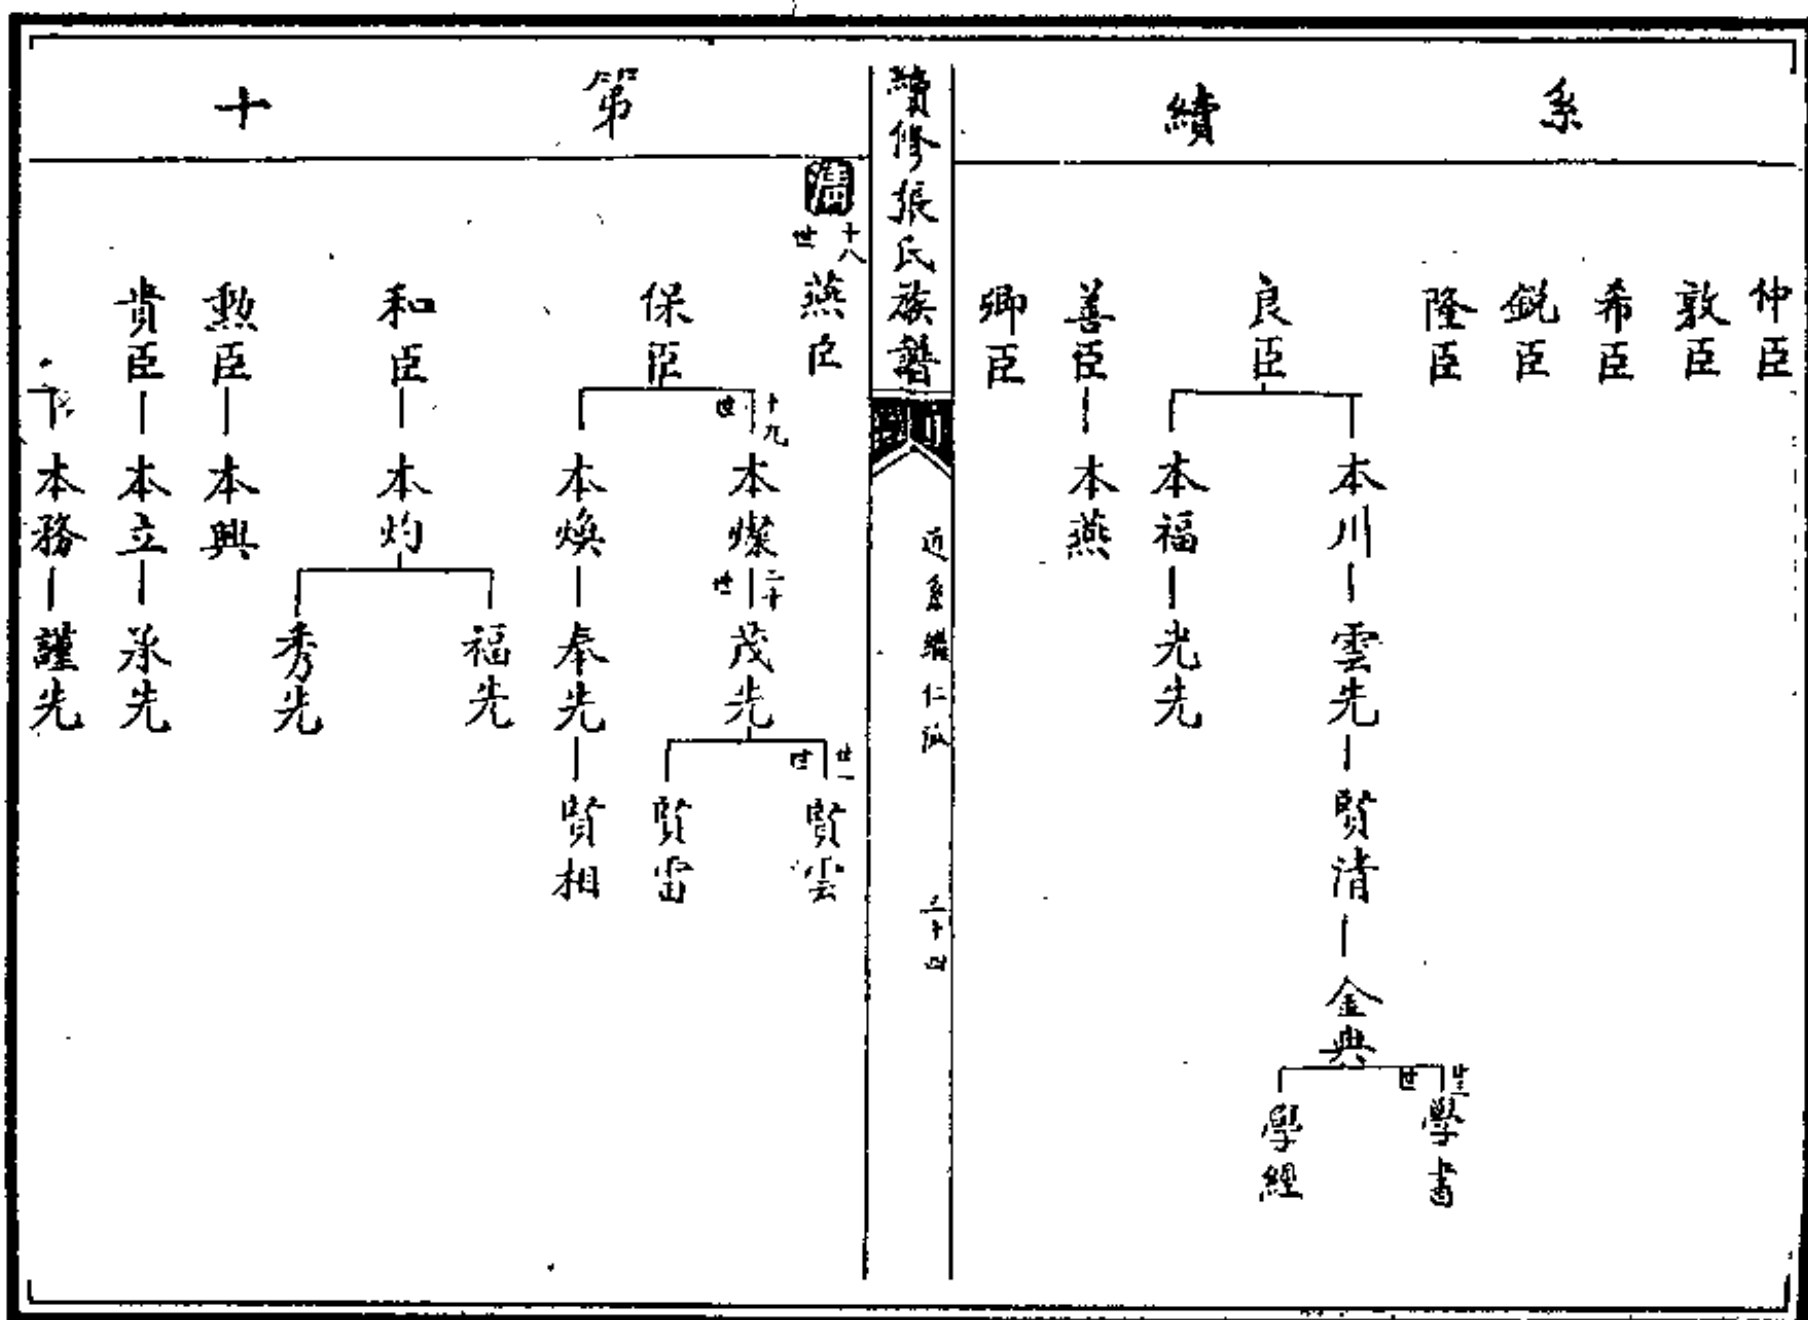 系續
仲臣
敦臣
希臣
鋭臣
隆臣
良臣
本川
雲先
賢清
金典
廿三世
學書
學經
本福
光先
善臣
本燕
卿臣
續修張氏族譜
仁
三十
第十
十八世
燕臣
保臣
十九世
本燦
二十世
茂先
廿一世
賢雲
賢雷
本煥
奉先
賢相
和臣
本灼
福先
秀先
勲臣
本興
貴臣
本立
承先
本務
謹先